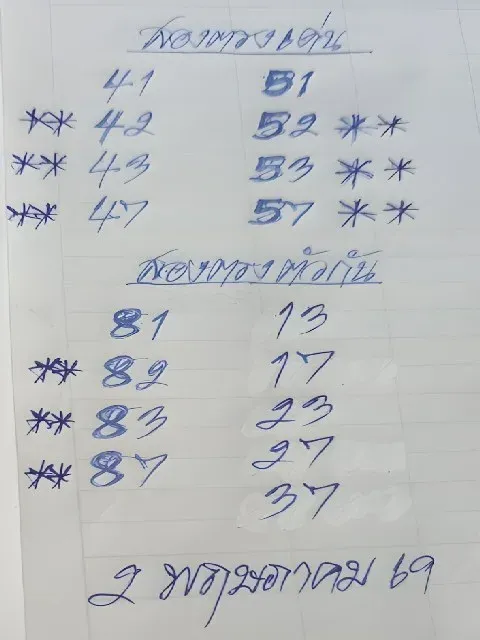 สองตรงเด่น
41 51
** 42 52 **
** 43 53 **
** 47 57 **
สองตรงตัวกัน
81 13
** 82 17
** 83 23
** 87 27
37
2 พฤษภาคม 69